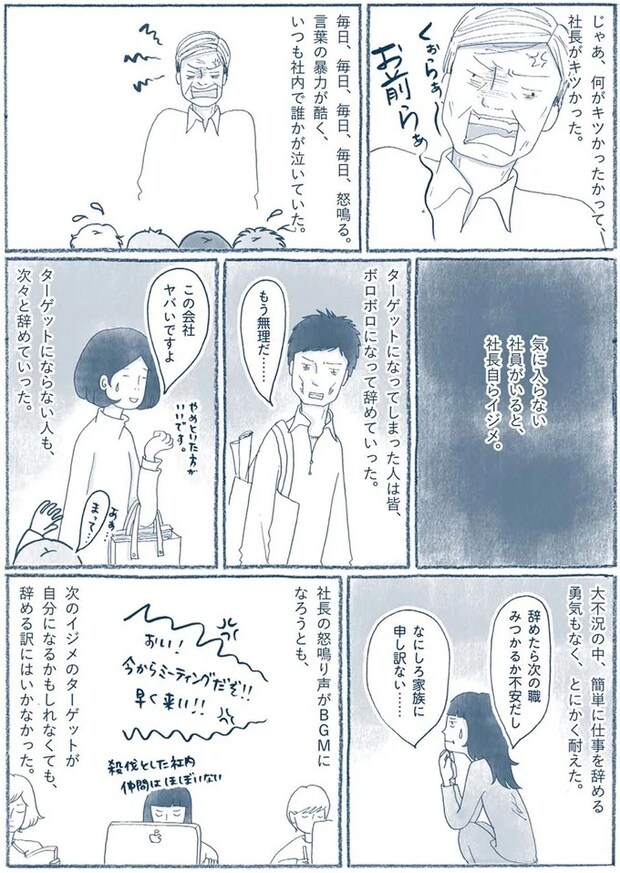 じゃあ、何がキツかったかって、
社長がキツかった。
くぉらぁー
お前らぁ
毎日、毎日、毎日、毎日、怒鳴る。
言葉の暴力が酷く、
いつも社内で誰かが泣いていた。
気に入らない
社員がいると、
社長自らイジメ。
ターゲットになってしまった人は皆、
ボロボロになって辞めていった。
もう無理だ……
この会社
ヤバいですよ
やめといた方が
いいです。
あぁ…
まって…
ターゲットにならない人も、
次々と辞めていった。
大不況の中、簡単に仕事を辞める
勇気もなく、とにかく耐えた。
辞めたら次の職
みつかるか不安だし
なにしろ家族に
申し訳ない……
社長の怒鳴り声がBGMに
なろうとも、
おい!
今からミーティングだぞ!!
早く来い!!
殺伐とした社内
仲間はほぼいない
次のイジメのターゲットが
自分になるかもしれなくても、
辞める訳にはいかなかった。